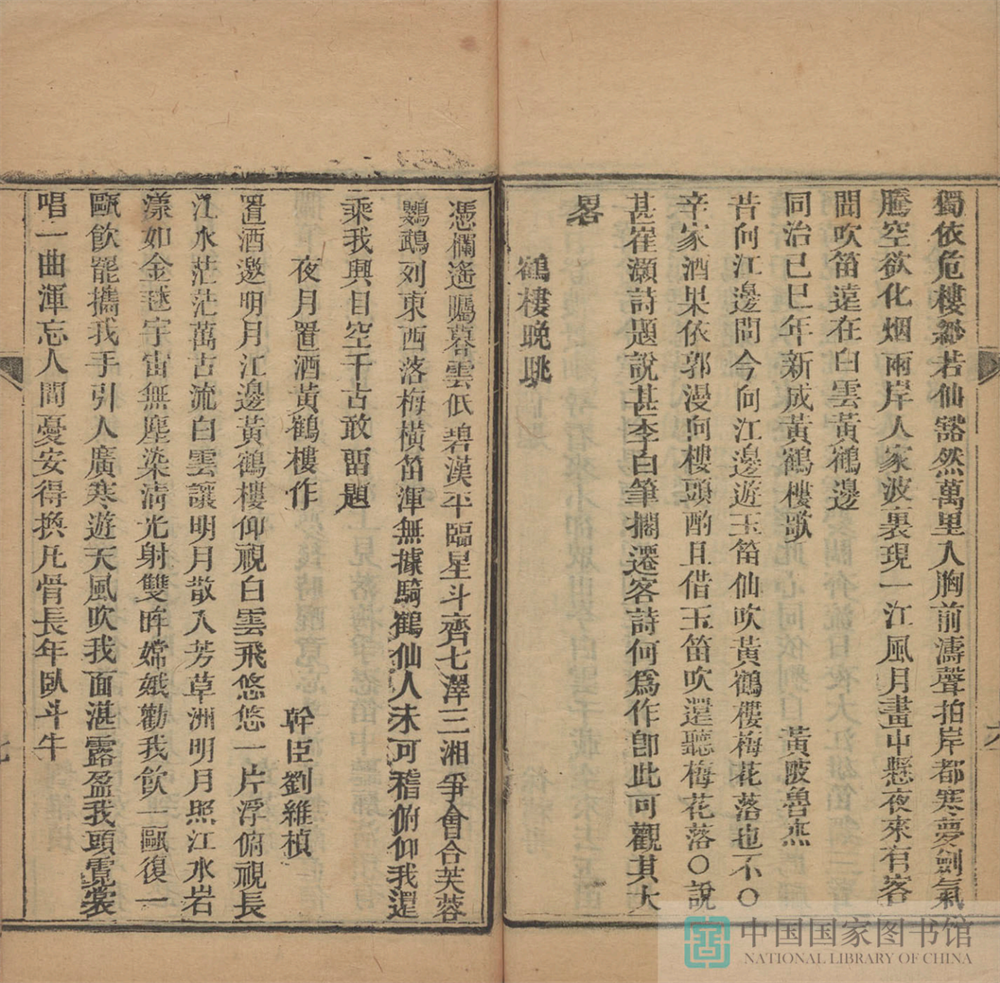 獨依危樓縹若仙豁然萬里入胸前濤聲拍岸都寒夢劍氣
騰空欲化烟兩岸人家波裏現一江風月畫中懸夜來有客
聞吹笛遠在白雲黃鶴邊
同治己巳年新成黃鶴樓歌 黃陂魯杰
昔向江邊問今向江邊遊玉笛仙吹黃鶴樓梅花落也不〇
辛家酒果依郭漫向樓頭酌且借玉笛吹還聽梅花落〇說
甚崔灝詩題說甚李白筆擱遷客詩何為作卽此可觀其大
畧
鶴樓晚眺
憑欄遙矚暮雲低碧漢平臨星斗齊七澤三湘爭會合芙蓉
鸚鵡列東西落梅橫笛渾無據騎鶴仙人未可稽俯仰我還
乘我興目空千古敢畱題
夜月置酒黃鶴樓作 幹臣劉維楨
置酒邀明月江邊黃鶴樓仰視白雲飛悠悠一片浮俯視長
江水茫茫萬古流白雲讓明月散入芳草洲明月照江水岩
漾如金毬宇宙無塵染清光射雙眸嫦娥勸我飲一甌復一
甌飲罷攜我手引人廣寒遊天風吹我面湛露盈我頭霓裳
唱一曲渾忘人間憂安得換凡骨長年臥斗牛
六
七
中国国家图书馆
NATIONAL LIBRARY OF CHINA